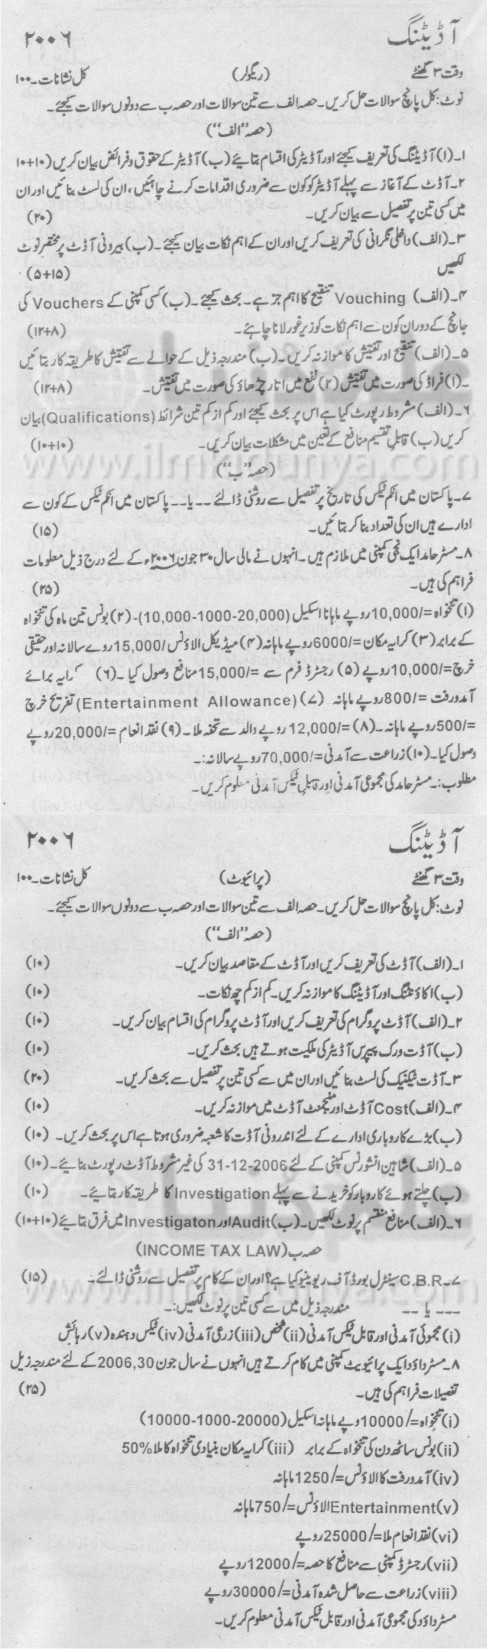 آڈیٹنگ ۲۰۰۶
وقت ۳ گھنٹے (ریگولر) کل نشانات۔۱۰۰
نوٹ: کل پانچ سوالات حل کریں۔ حصہ الف سے تین سوالات اور حصہ ب سے دونوں سوالات کیجئے۔
(حصہ "الف")
۱۔(ا) آڈیٹنگ کی تعریف کیجئے اور آڈیٹر کی اقسام بتایئے (ب) آڈیٹر کے حقوق و فرائض بیان کریں (۱۰+۱۰)
۲۔ آڈٹ کے آغاز سے پہلے آڈیٹر کو کون سے ضروری اقدامات کرنے چاہئیں، ان کی لسٹ بنائیں اور ان
میں کسی تین پر تفصیل سے بیان کریں۔ (۲۰)
۳۔(الف) داخلی نگرانی کی تعریف کریں اور ان کے اہم نکات بیان کیجئے۔ (ب) بیرونی آڈٹ پر مختصر نوٹ
لکھیں (۵+۱۵)
۴۔(الف) Vouching تنقیح کا اہم جز ہے۔ بحث کیجئے۔ (ب) کسی کمپنی کے Vouchers کی
جانچ کے دوران کون سے اہم نکات کو زیر غور لانا چاہئے۔ (۱۲+۸)
۵۔(الف) تنقیح اور تفتیش کا موازنہ کریں۔ (ب) مندرجہ ذیل کے حوالے سے تفتیش کا طریقہ کار بتائیں
۔(۱) فراڈ کی صورت میں تفتیش (۲) نفع میں اتار چڑھاؤ کی صورت میں تفتیش۔ (۱۲+۸)
۶۔(الف) مشروط رپورٹ کیا ہے اس پر بحث کیجئے اور کم از کم تین شرائط (Qualifications) بیان
کریں (ب) قابل تقسیم منافع کے تعین میں مشکلات بیان کریں۔ (۱۰+۱۰)
(حصہ "ب")
www.ilmkidunya.com
۷۔ پاکستان میں انکم ٹیکس کی تاریخ پر تفصیل سے روشنی ڈالئے ۔۔یا۔۔ پاکستان میں انکم ٹیکس کے کون سے
ادارے ہیں ان کی تعداد بنا کر بتائیں۔ (۱۵)
۸۔ مسٹر حامد ایک نجی کمپنی میں ملازم ہیں۔ انہوں نے مالی سال ۳۰ جون ۲۰۰۶ء کے لئے درج ذیل معلومات
فراہم کی ہیں۔ (۲۵)
(۱) تنخواہ =/10,000 روپے ماہانہ اسکیل (20,000-1000-10,000)۔ (۲) بونس تین ماہ کی تنخواہ
کے برابر (۳) کرایہ مکان =/6000 روپے ماہانہ (۴) میڈیکل الاؤنس /15,000 روپے سالانہ اور حقیقی
خرچ =/10,000 روپے (۵) رجسٹرڈ فرم سے =/15,000 منافع وصول کیا۔ (۶) کرایہ برائے
آمدورفت =/800 روپے ماہانہ (۷) (Entertainment Allowance) تفریح خرچ
=/500 روپے ماہانہ۔ (۸) =/12,000 روپے والد سے تحفہ ملا۔ (۹) نقد انعام =/20,000 روپے
وصول کیا۔ (۱۰) زراعت سے آمدنی =/70,000 روپے سالانہ:۔
مطلوب:۔ مسٹر حامد کی مجموعی آمدنی اور قابل ٹیکس آمدنی معلوم کریں۔
آڈیٹنگ ۲۰۰۶
وقت ۳ گھنٹے (پرائیوٹ) کل نشانات۔۱۰۰
نوٹ: کل پانچ سوالات حل کریں۔ حصہ الف سے تین سوالات اور حصہ ب سے دونوں سوالات کیجئے۔
(حصہ "الف")
۱۔(الف) آڈٹ کی تعریف کریں اور آڈٹ کے مقاصد بیان کریں۔ (۱۰)
(ب) اکاؤنٹنگ اور آڈیٹنگ کا موازنہ کریں۔ کم از کم چھ نکات۔ (۱۰)
۲۔(الف) آڈٹ پروگرام کی تعریف کریں اور آڈٹ پروگرام کی اقسام بیان کریں۔ (۱۰)
(ب) آڈٹ ورک پیپرس آڈیٹر کی ملکیت ہوتے ہیں بحث کریں۔ (۱۰)
۳۔ آڈٹ تیکنیک کی لسٹ بنائیں اور ان میں سے کسی تین پر تفصیل سے بحث کریں۔ (۲۰)
۴۔(الف) Cost آڈٹ اور منیجمنٹ آڈٹ میں موازنہ کریں۔ (۱۰)
(ب) بڑے کاروباری ادارے کے لئے اندرونی آڈٹ کا شعبہ ضروری ہوتا ہے اس پر بحث کریں۔ (۱۰)
۵۔(الف) شاہین انشورنس کمپنی کے لئے 2006-12-31 کی غیر مشروط آڈٹ رپورٹ بنایئے۔ (۱۰)
(ب) چلتے ہوئے کاروبار کو خریدنے سے پہلے Investigation کا طریقہ کار بتایئے۔ (۱۰)
۶۔(الف) منافع منقسم پر نوٹ لکھیں۔ (ب) Audit اور Investigaton میں فرق بتایئے (۱۰+۱۰)
حصہ ب (INCOME TAX LAW)
۷۔ C.B.R سینٹرل بورڈ آف ریوینیو کیا ہے؟ اور ان کے کام پر تفصیل سے روشنی ڈالئے۔ (۱۵)
www.ilmkidunya.com
۔۔۔ یا ۔۔ مندرجہ ذیل میں سے کسی تین پر نوٹ لکھیں:۔
(i) مجموعی آمدنی اور قابل ٹیکس آمدنی (ii) شخص (iii) زرعی آمدنی (iv) ٹیکس دہندہ (v) رہائش
۸۔ مسٹر داؤد ایک پرائیویٹ کمپنی میں کام کرتے ہیں انہوں نے سال جون 2006,30 کے لئے مندرجہ ذیل
تفصیلات فراہم کی ہیں۔ (۲۵)
(i) تنخواہ =/10000 روپے ماہانہ اسکیل (20000-1000-10000)
(ii) بونس ساٹھ دن کی تنخواہ کے برابر (iii) کرایہ مکان بنیادی تنخواہ کا ملا %50
(iv) آمدورفت کا الاؤنس =/1250 ماہانہ
(v) Entertainment الاؤنس =/750 ماہانہ
(vi) نقد انعام ملا =/25000 روپے
(vii) رجسٹرڈ کمپنی سے منافع کا حصہ =/12000 روپے
(viii) زراعت سے حاصل شدہ آمدنی =/30000 روپے
مسٹر داؤد کی مجموعی آمدنی اور قابل ٹیکس آمدنی معلوم کریں۔